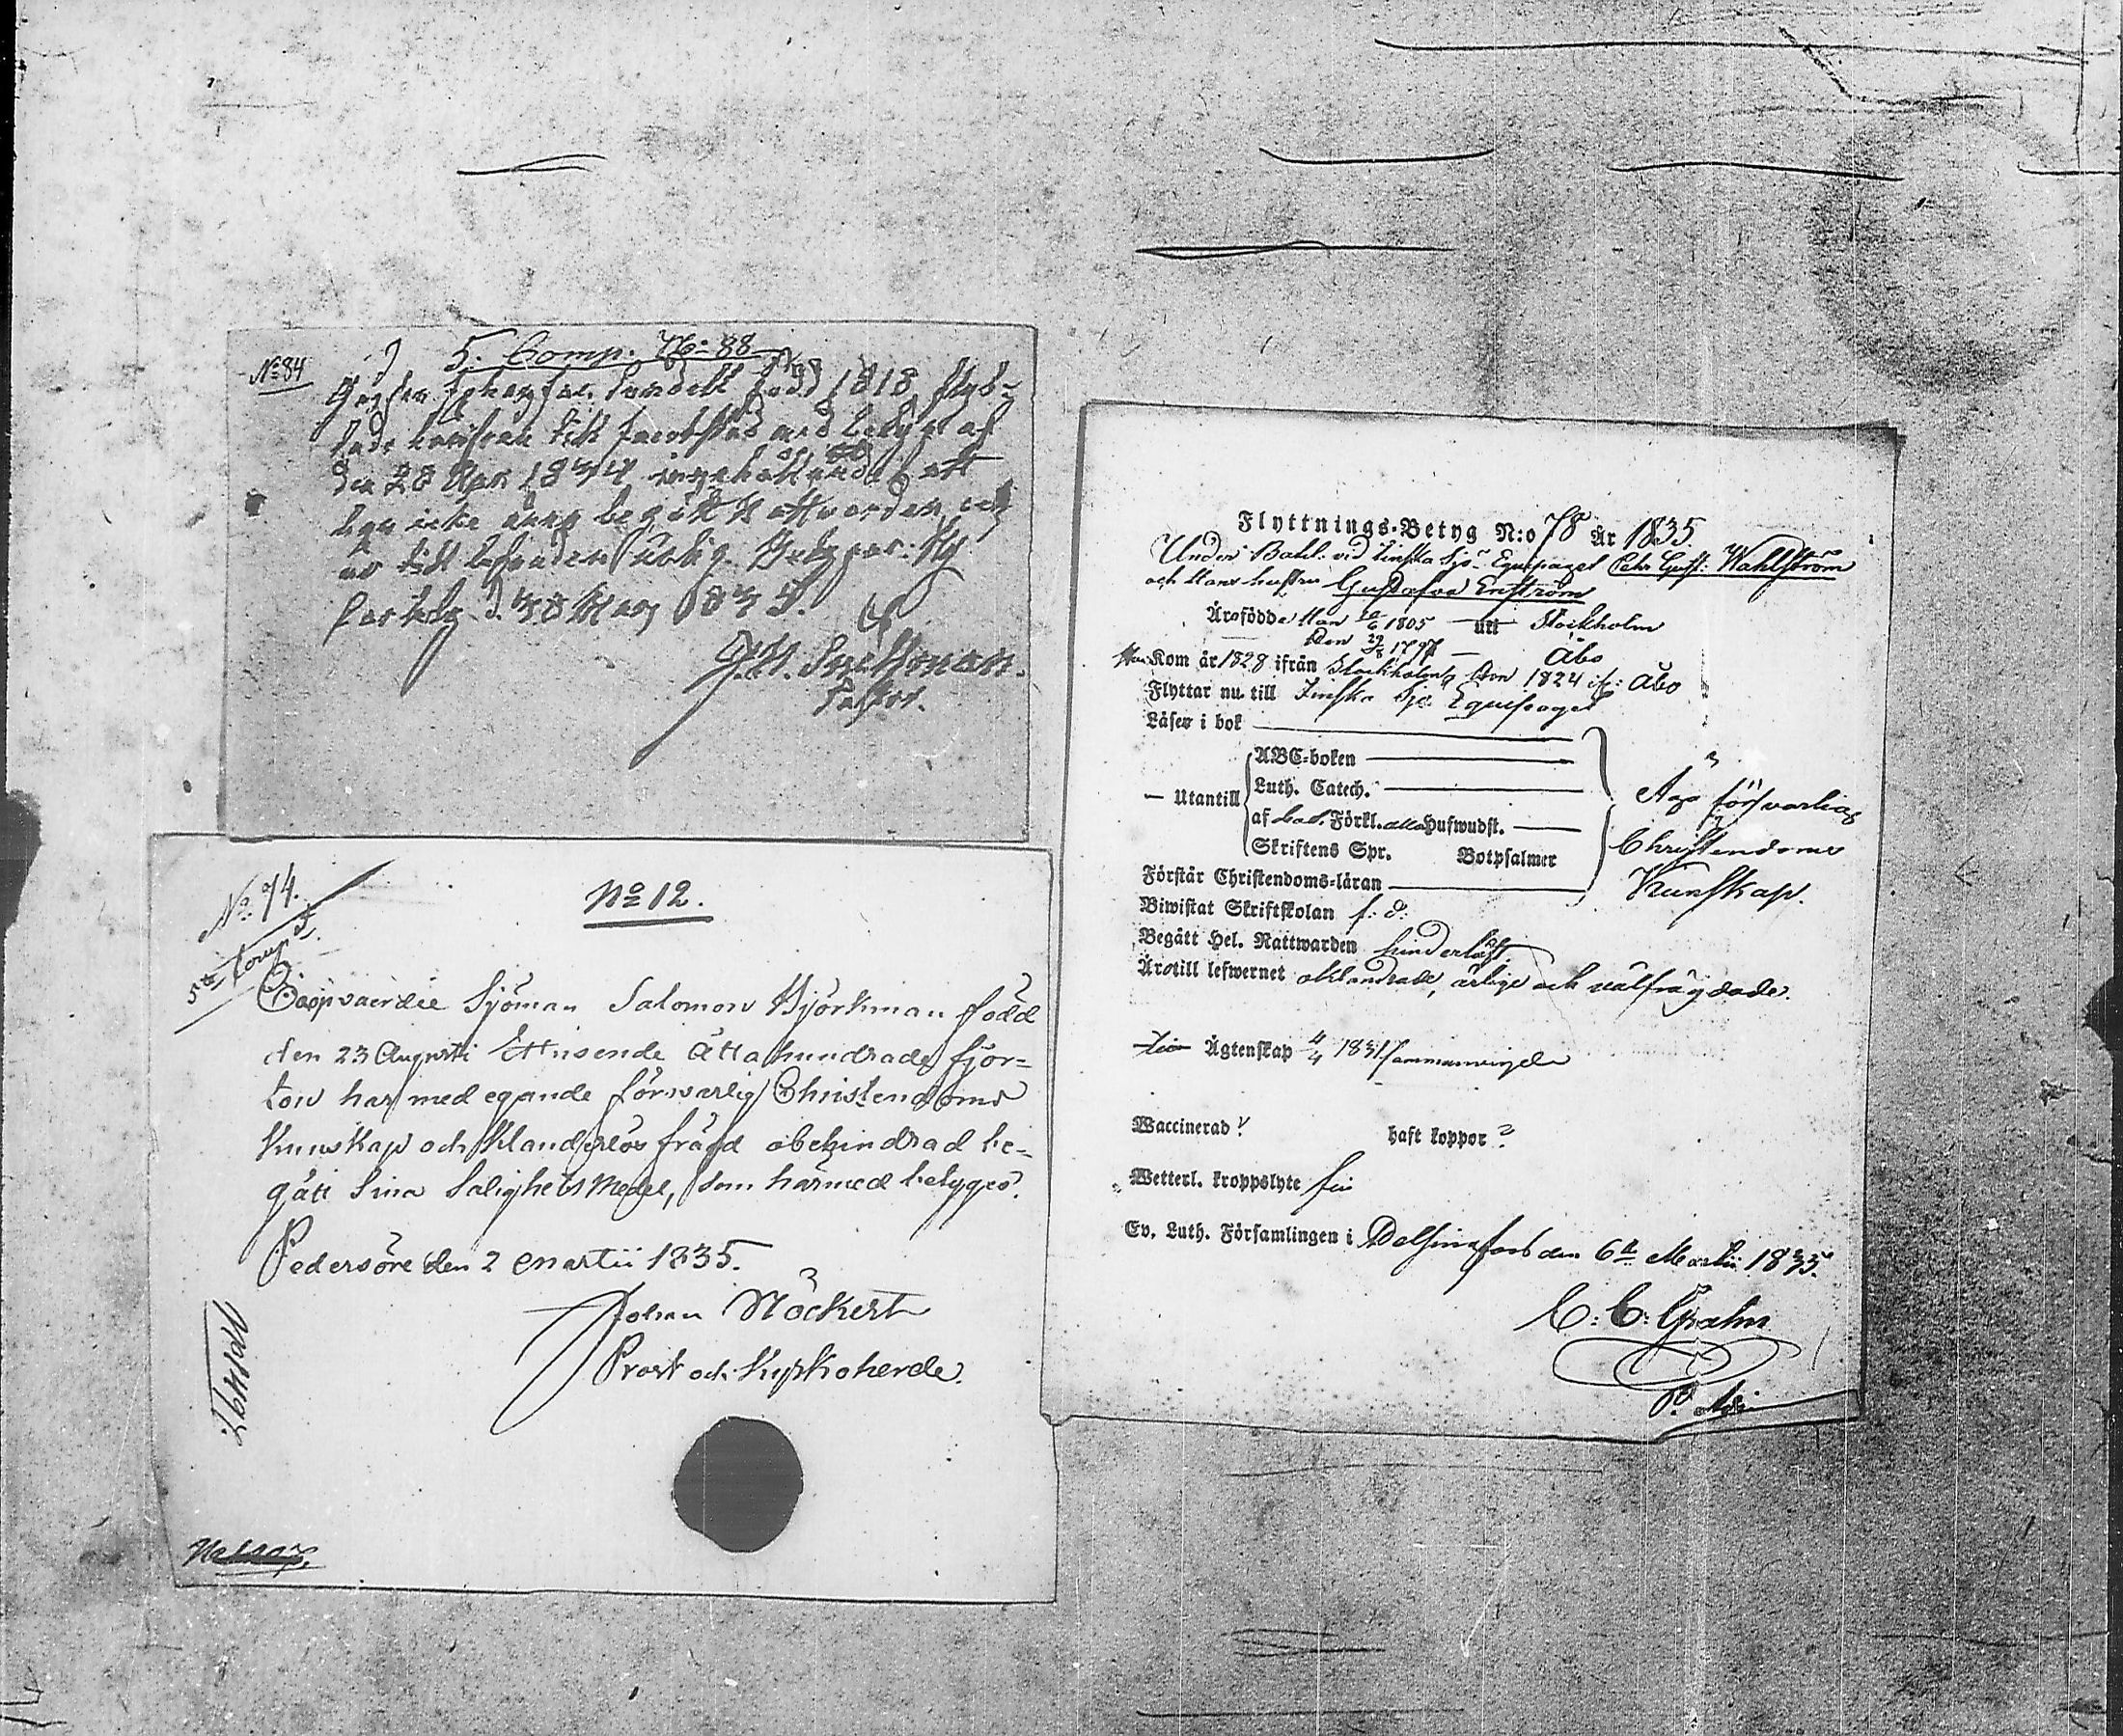 No 84
5. Comp. No 88
född 1818 flyt-
tade härifrån till Jacobstad med betyg af
den 28 Apr. 1834 innehållande att
han icke ännu begått Nattvarden och
är till lefnaden
d. 30 Mars 1835.
Snellman.
Pastor.
No 74.
5te Comp.
No 12.
Sjöman Salomon Björkman född
den 23 Augusti Ettusende åtta hundrade fjor-
ton har med egande försvarlig Christendoms
Kunskap och Klanderlös fräjd obehindrad be-
gått Sina Salighets Medel, som härmed betygas.
Pedersöre den 2 Martii 1835.
Johan Möckert
Prost och Kyrkoherde.
Flyttnings-Betyg N:o 78 År 1835.
Under Båtsl. vid Finska Sjö-Equipaget Pehr Gust: Wahlström
och Hans hustru Gustafva Enström
Äro födde Han 20/6 1805 uti Stockholm
Hon 29/8 1797 — Åbo
Han Kom år 1828 ifrån Stockholm, Hon 1824 ifr: Åbo
Flyttar nu till Finska Sjö Equipaget
Läser i bok
ABC-boken
— Utantill Luth. Catech.
af Förkl. alla Hufwudst.
Skriftens Spr. Botpsalmer
Äga försvarlig
Christendoms
Kunskap.
Förstår Christendoms-läran
Biwistat Skriftskolan f: d:
Begått Hel. Nattwarden hinderlöst,
Äro till lefwernet oklandrade, ärlige och välfrägdade.
Ägtenskap 4/4 1831 sammanvigde
Waccinerad? haft koppor?
Wetterl. kroppslyte fri
Ev. Luth. Församlingen i Helsingfors den 6te Martii 1835.
C: C: Grahn